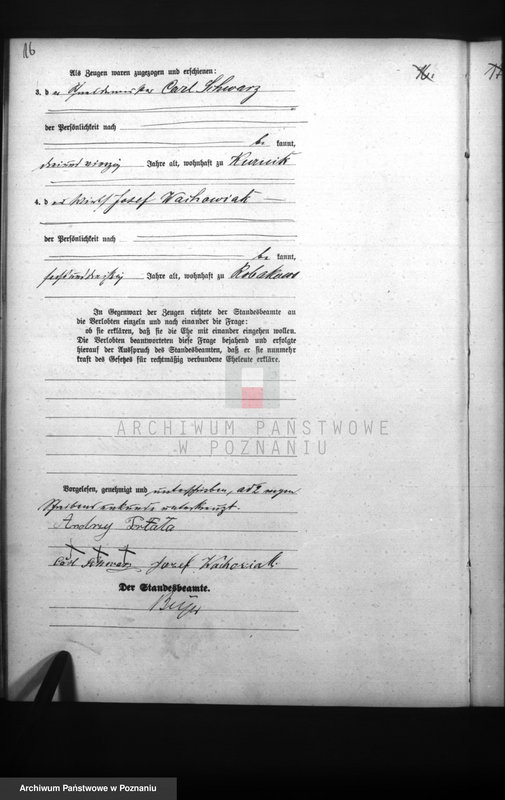 16
16.
17
Als Zeugen waren zugezogen und erschienen:
3. der Carl Schwarz
der Persönlichkeit nach
be kannt,
dreiundvierzig Jahre alt, wohnhaft zu Kurnik
4. der Wirth Josef Wachowiak
der Persönlichkeit nach
be kannt,
sechsunddreißig Jahre alt, wohnhaft zu Robakowo
In Gegenwart der Zeugen richtete der Standesbeamte an
die Verlobten einzeln und nach einander die Frage:
ob sie erklären, daß sie die Ehe mit einander eingehen wollen.
Die Verlobten beantworteten diese Frage bejahend und erfolgte
hierauf der Ausspruch des Standesbeamten, daß er sie nunmehr
kraft des Gesetzes für rechtmäßig verbundene Eheleute erkläre.
ARCHIWUM PAŃSTWOWE
W POZNANIU
Vorgelesen, genehmigt und unterschrieben, ad 2 wegen
Schreibensunkunde unterkreuzt.
Andrzej
+ + +
Carl Schwarz Josef Wachowiak.
Der Standesbeamte.
Archiwum Państwowe w Poznaniu